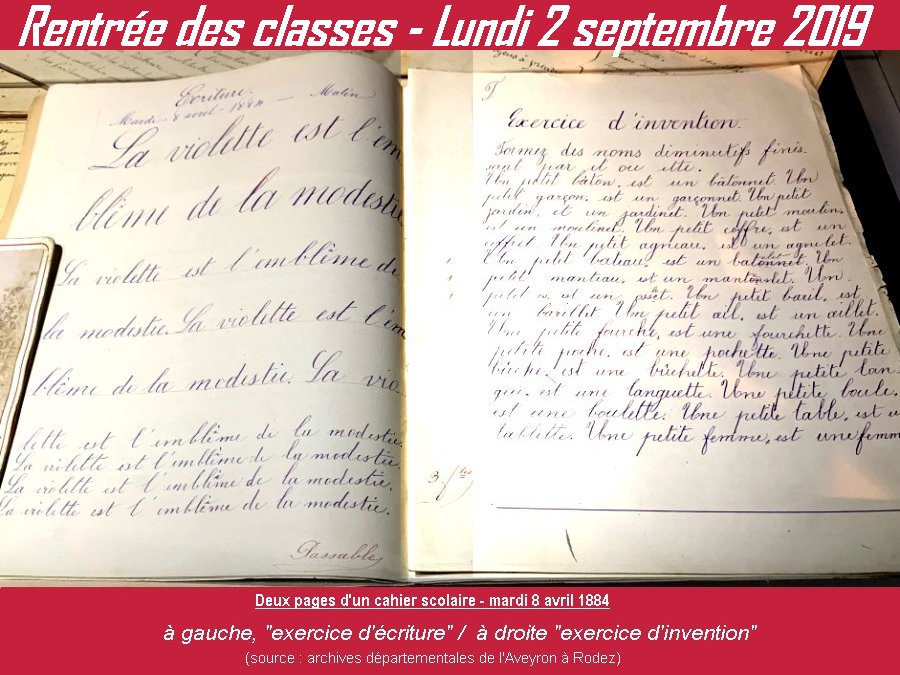 Rentrée des classes - Lundi 2 septembre 2019
Ecriture.
Mardi - 8 avril - 1884 - Matin
La violette est l'em
blême de la modestie
La violette est l'emblême de
la modestie. La violette est l'em
blême de la modestie. La vio
lette est l'emblême de la modestie.
La violette est l'emblême de la modestie.
La violette est l'emblême de la modestie.
La violette est l'emblême de la modestie.
Passable
Exercice d'invention.
Formez des noms diminutifs finis
sant par et ou ette.
Un petit bâton, est un bâtonnet. Un
petit garçon, est un garçonnet. Un petit
jardin, et un jardinet. Un petit moulin,
est un moulinet. Un petit coffre, est un
coffret. Un petit agneau, est un agnelet.
Un petit bateau, est un
petit manteau, est un Un
petit est un Un petit baril, est
un barillet. Un petit œil, est un œillet.
Une petite fourche, est une fourchette. Une
petite poche, est une pochette. Une petite
bûche, est une bûchette. Une petite lan
gue, est une languette. Une petite boule,
est une boulette. Une petite table, est u
tablette. Une petite femme, est une femm
Deux pages d'un cahier scolaire - mardi 8 avril 1884
à gauche, "exercice d'écriture" / à droite "exercice d'invention"
(source : archives départementales de l'Aveyron à Rodez)